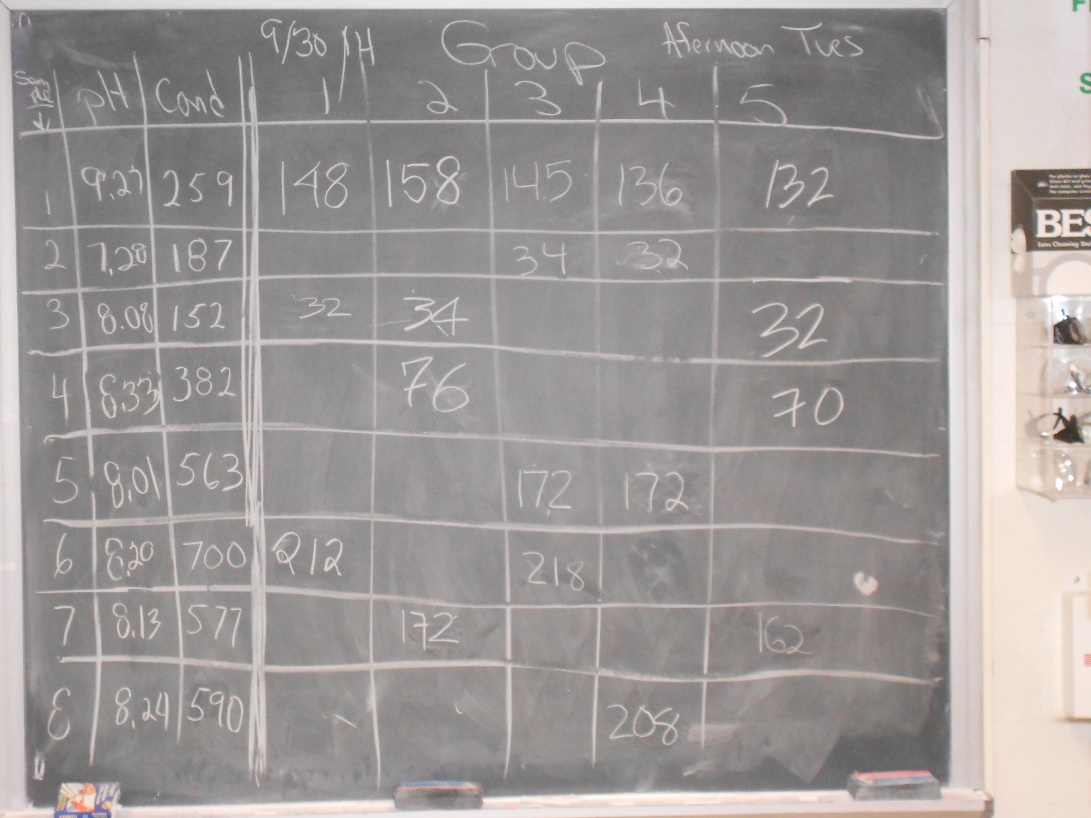 9/30 H Group Afernoon Tues
Sample pH Cond 1 2 3 4 5
1 9.27 259 148 158 145 136 132
2 7.20 187 34 32
3 8.08 152 32 34 32
4 8.33 382 76 70
5 8.01 563 172 172
6 8.20 700 212 218
7 8.13 577 172 162
8 8.24 590 208
BES